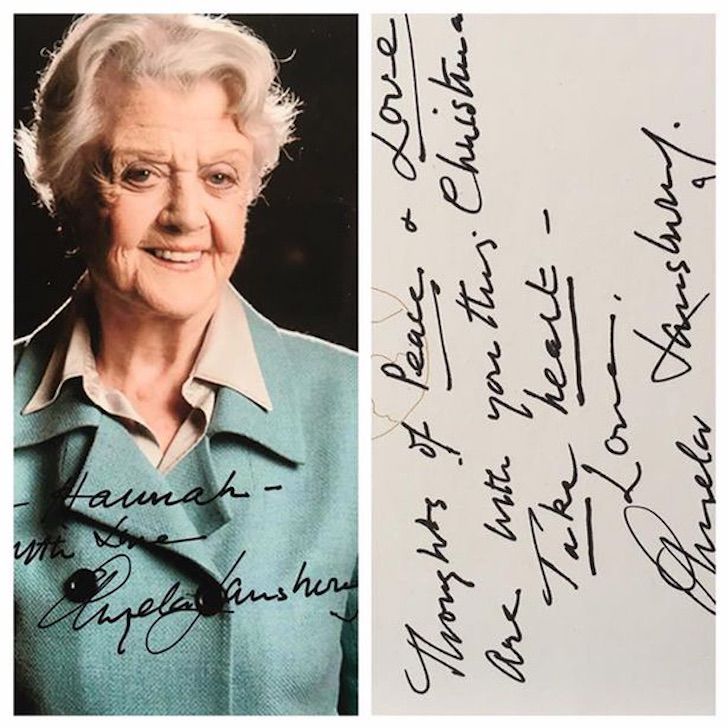 - Hannah -
With Love
Angela Lansbury
Thoughts of Peace & Love
Are with you this Christmas
Take heart -
Love.
Angela Lansbury.